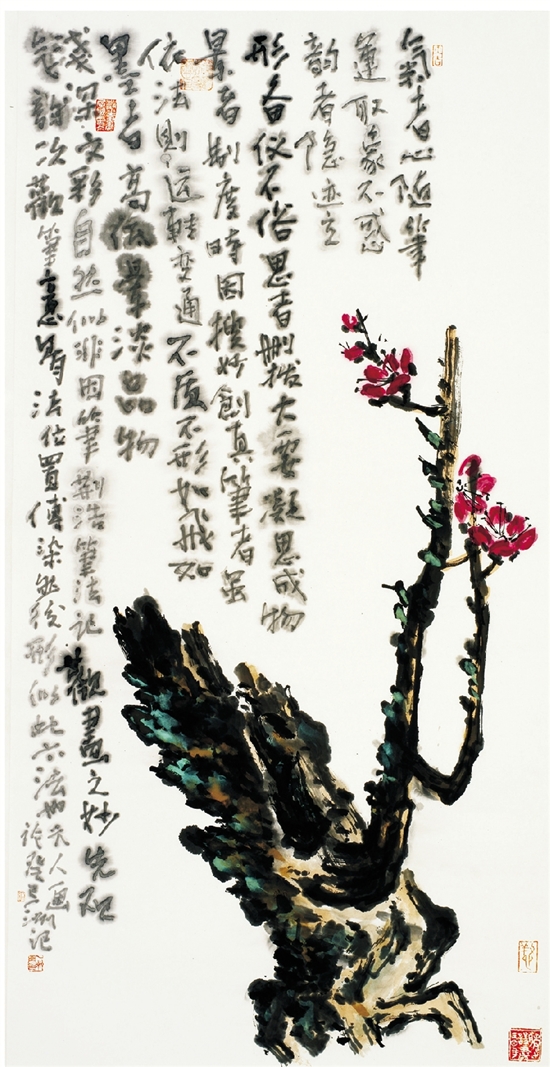 氣者心随筆
運取象不惑
韵者隐迹立
形备仪不俗思者删拨大要凝思成物
景者制度時因搜妙創真筆者虽
依法則运轉变通不质不形如飛如
墨者高低暈淡品物
浅深文彩自然似非因筆荆浩筆法记觀畫之妙先观
氣韵次觀筆意骨法位置傅染然後形似此六法也元人画
论癸巳洲记